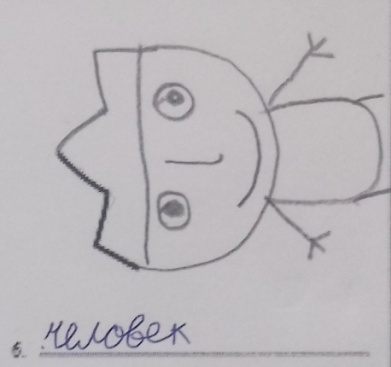 6. человек